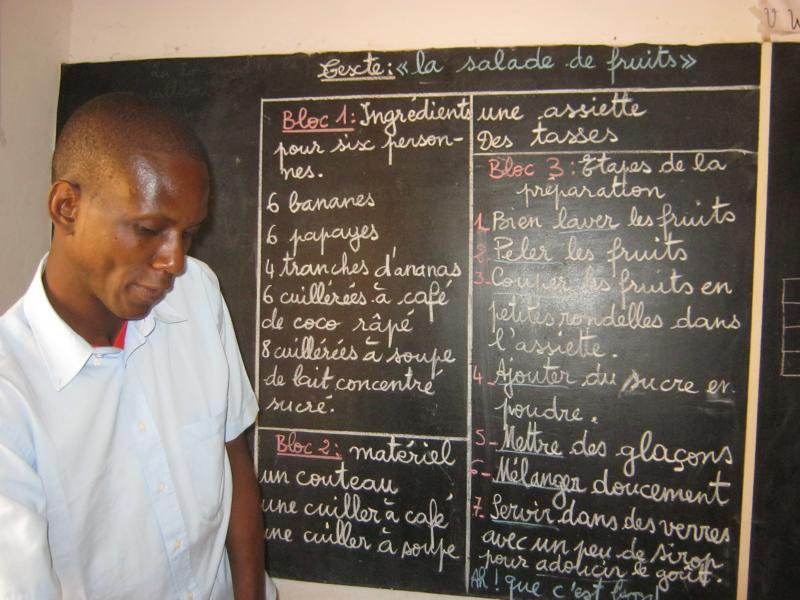 Texte: «la salade de fruits»
Bloc 1: Ingrédients
pour six person-
nes.
6 bananes
6 papayes
4 tranches d'ananas
6 cuillérées à café
de coco râpé
8 cuillérées à soupe
de lait concentré
sucré.
Bloc 2: matériel
un couteau
une cuiller à café
une cuiller à soupe
une assiette
Des tasses
Bloc 3: Etapes de la
préparation
1. Bien laver les fruits
2. Peler les fruits
3. Couper les fruits en
petites rondelles dans
l'assiette.
4. Ajouter du sucre en
poudre.
5- Mettre des glaçons
6- Mélanger doucement
7. Servir dans des verres
avec un peu de sirop
pour adolicir le goût.
Ah! que c'est bon